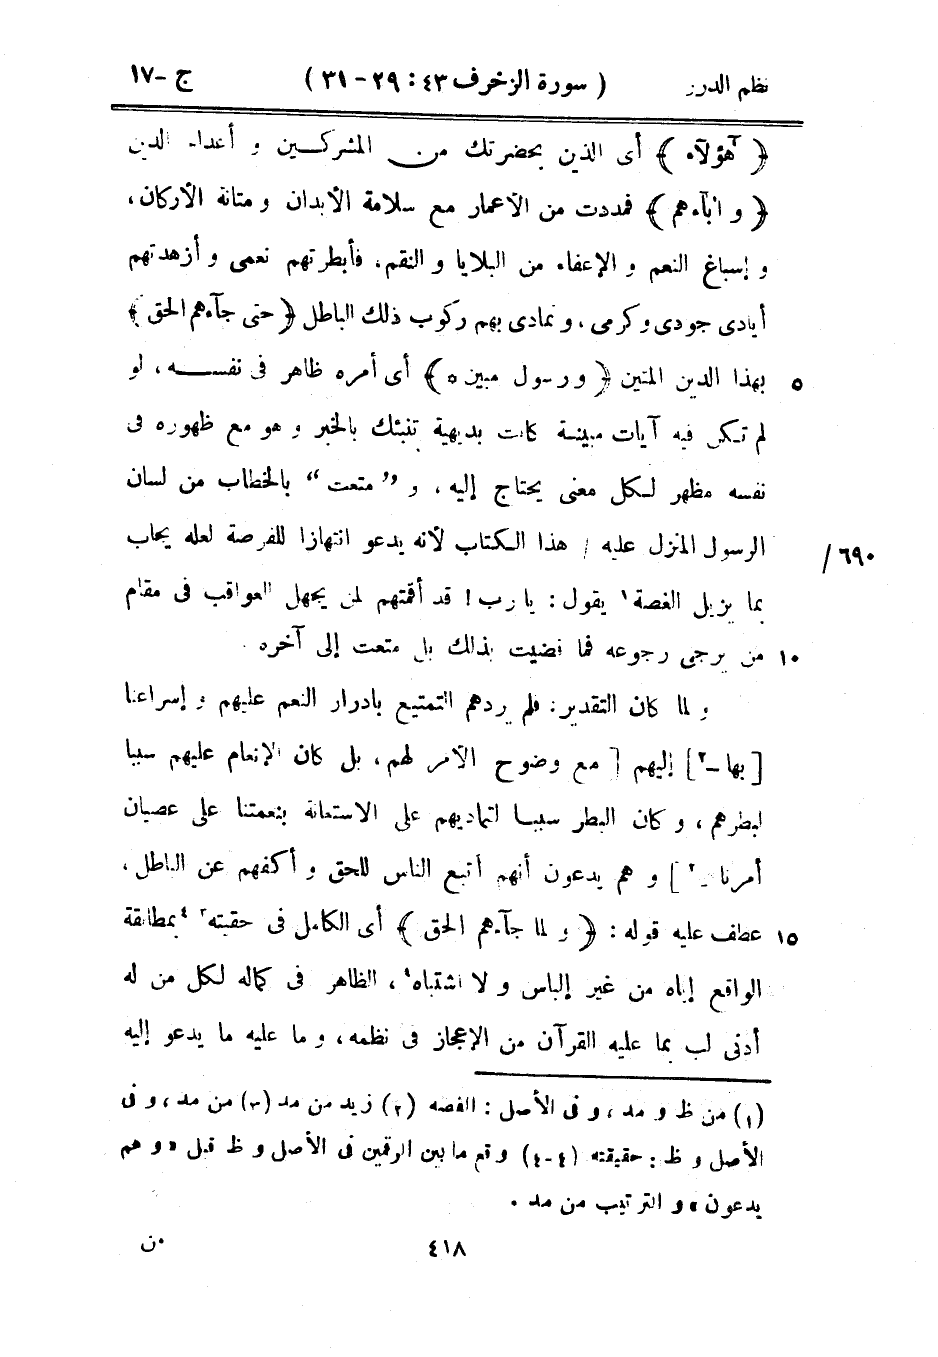 نظم الدرر ( سورة الزخرف ٤٣ : ٢٩ - ٣١ ) ج - ١٧
﴿ هٰؤلآء ﴾ أى الذين بحضرتك من المشركين و أعداء الدين
﴿ و اٰبآءهم ﴾ فمددت من الأعمار مع سلامة الأبدان و متانة الأركان،
و إسباغ النعم و الإعفاء من البلايا و النقم، فأبطرتهم نعمى و أزهدتهم
أيادى جودى و كرمى، و تمادى بهم ركوب ذلك الباطل ﴿ حتى جآءهم الحق ﴾
٥ بهذا الدين المتين ﴿ و رسول مبين ٥ ﴾ أى أمره ظاهر فى نفسه، لو
لم تكن فيه آيات مبينة كانت بديهية تنبئك بالخبر و هو مع ظهوره فى
نفسه مظهر لكل معنى يحتاج إليه، و "متعت" بالخطاب من لسان
الرسول المنزل عليه / هذا الكتاب لأنه يدعو انتهازا للفرصة لعله يجاب ٦٩٠/
بما يزيل الغصة١ يقول: يا رب! قد أقمتهم لمن يجهل العواقب فى مقام
١٠ من يرجى رجوعه فما قضيت بذلك بل متعت إلى آخره .
و لما كان التقدير: فلم يردهم التمتيع بادرار النعم عليهم و إسراعنا
[ بها -٢ ] إليهم [ مع وضوح الأمر لهم، بل كان الإنعام عليهم سببا
لبطرهم، و كان البطر سببا لتماديهم على الاستعانة بنعمتنا على عصيان
أمرنا -٢ ] و هم يدعون أنهم أتبع الناس للحق و أكفهم عن الباطل،
١٥ عطف عليه قوله: ﴿ و لما جآءهم الحق ﴾ أى الكامل فى حقيته٣ ٤بمطابقة
الواقع إياه من غير إلباس و لا اشتباه٤، الظاهر فى كماله لكل من له
أدنى لب بما عليه القرآن من الإعجاز فى نظمه، و ما عليه ما يدعو إليه
(١) من ظ و مد، و فى الأصل : الفصه (٢) زيد من مد (٣) من مد، و فى
الأصل و ظ : حقيقته (٤-٤) وقع ما بين الرقمين فى الأصل و ظ قبل «و هم
يدعون» و الترتيب من مد .
٤١٨ من